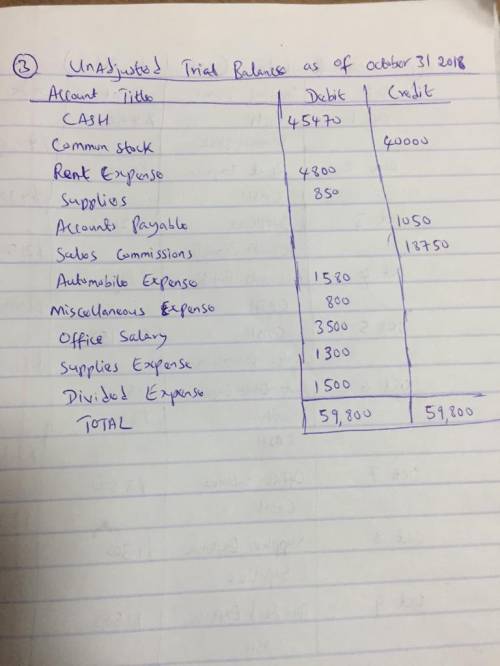 3 UnAdjusted Trial Balance as of october 31 2018
Account Title Debit Credit
CASH 45470
Common stock 40000
Rent Expense 4800
Supplies 850
Accounts Payable 1050
Sales Commissions 18750
Automobile Expense 1580
Miscellaneous Expense 800
Office Salary 3500
Supplies Expense 1300
Divided Expense 1500
TOTAL 59,800 59,800